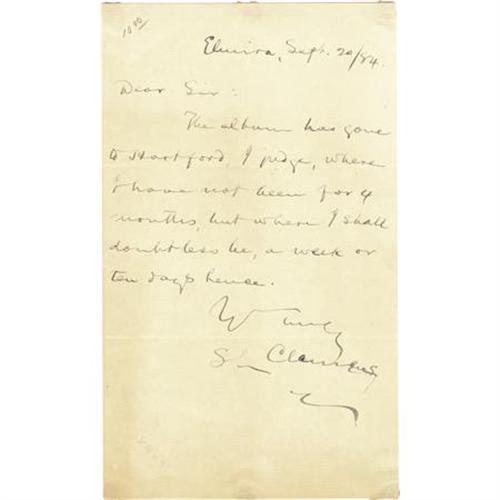 Elmira, Sept. 20/84.
Dear Sir:
The album has gone
to Hartford, I judge, where
I have not been for 4
months, but where I shall
doubtless be, a week or
ten days hence.
Truly
S L Clemens